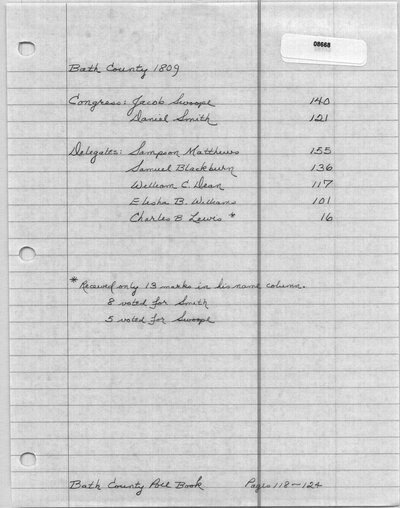 08668
Bath County 1809
Congress: Jacob Swoope 140
Daniel Smith 121
Delegates: Sampson Matthews 155
Samuel Blackburn 136
William C. Dean 117
Elisha B. Williams 101
Charles B Lewis * 16
* Received only 13 marks in his name column.
8 voted for Smith
5 voted for Swoope
Bath County Poll Book Pages 118-124